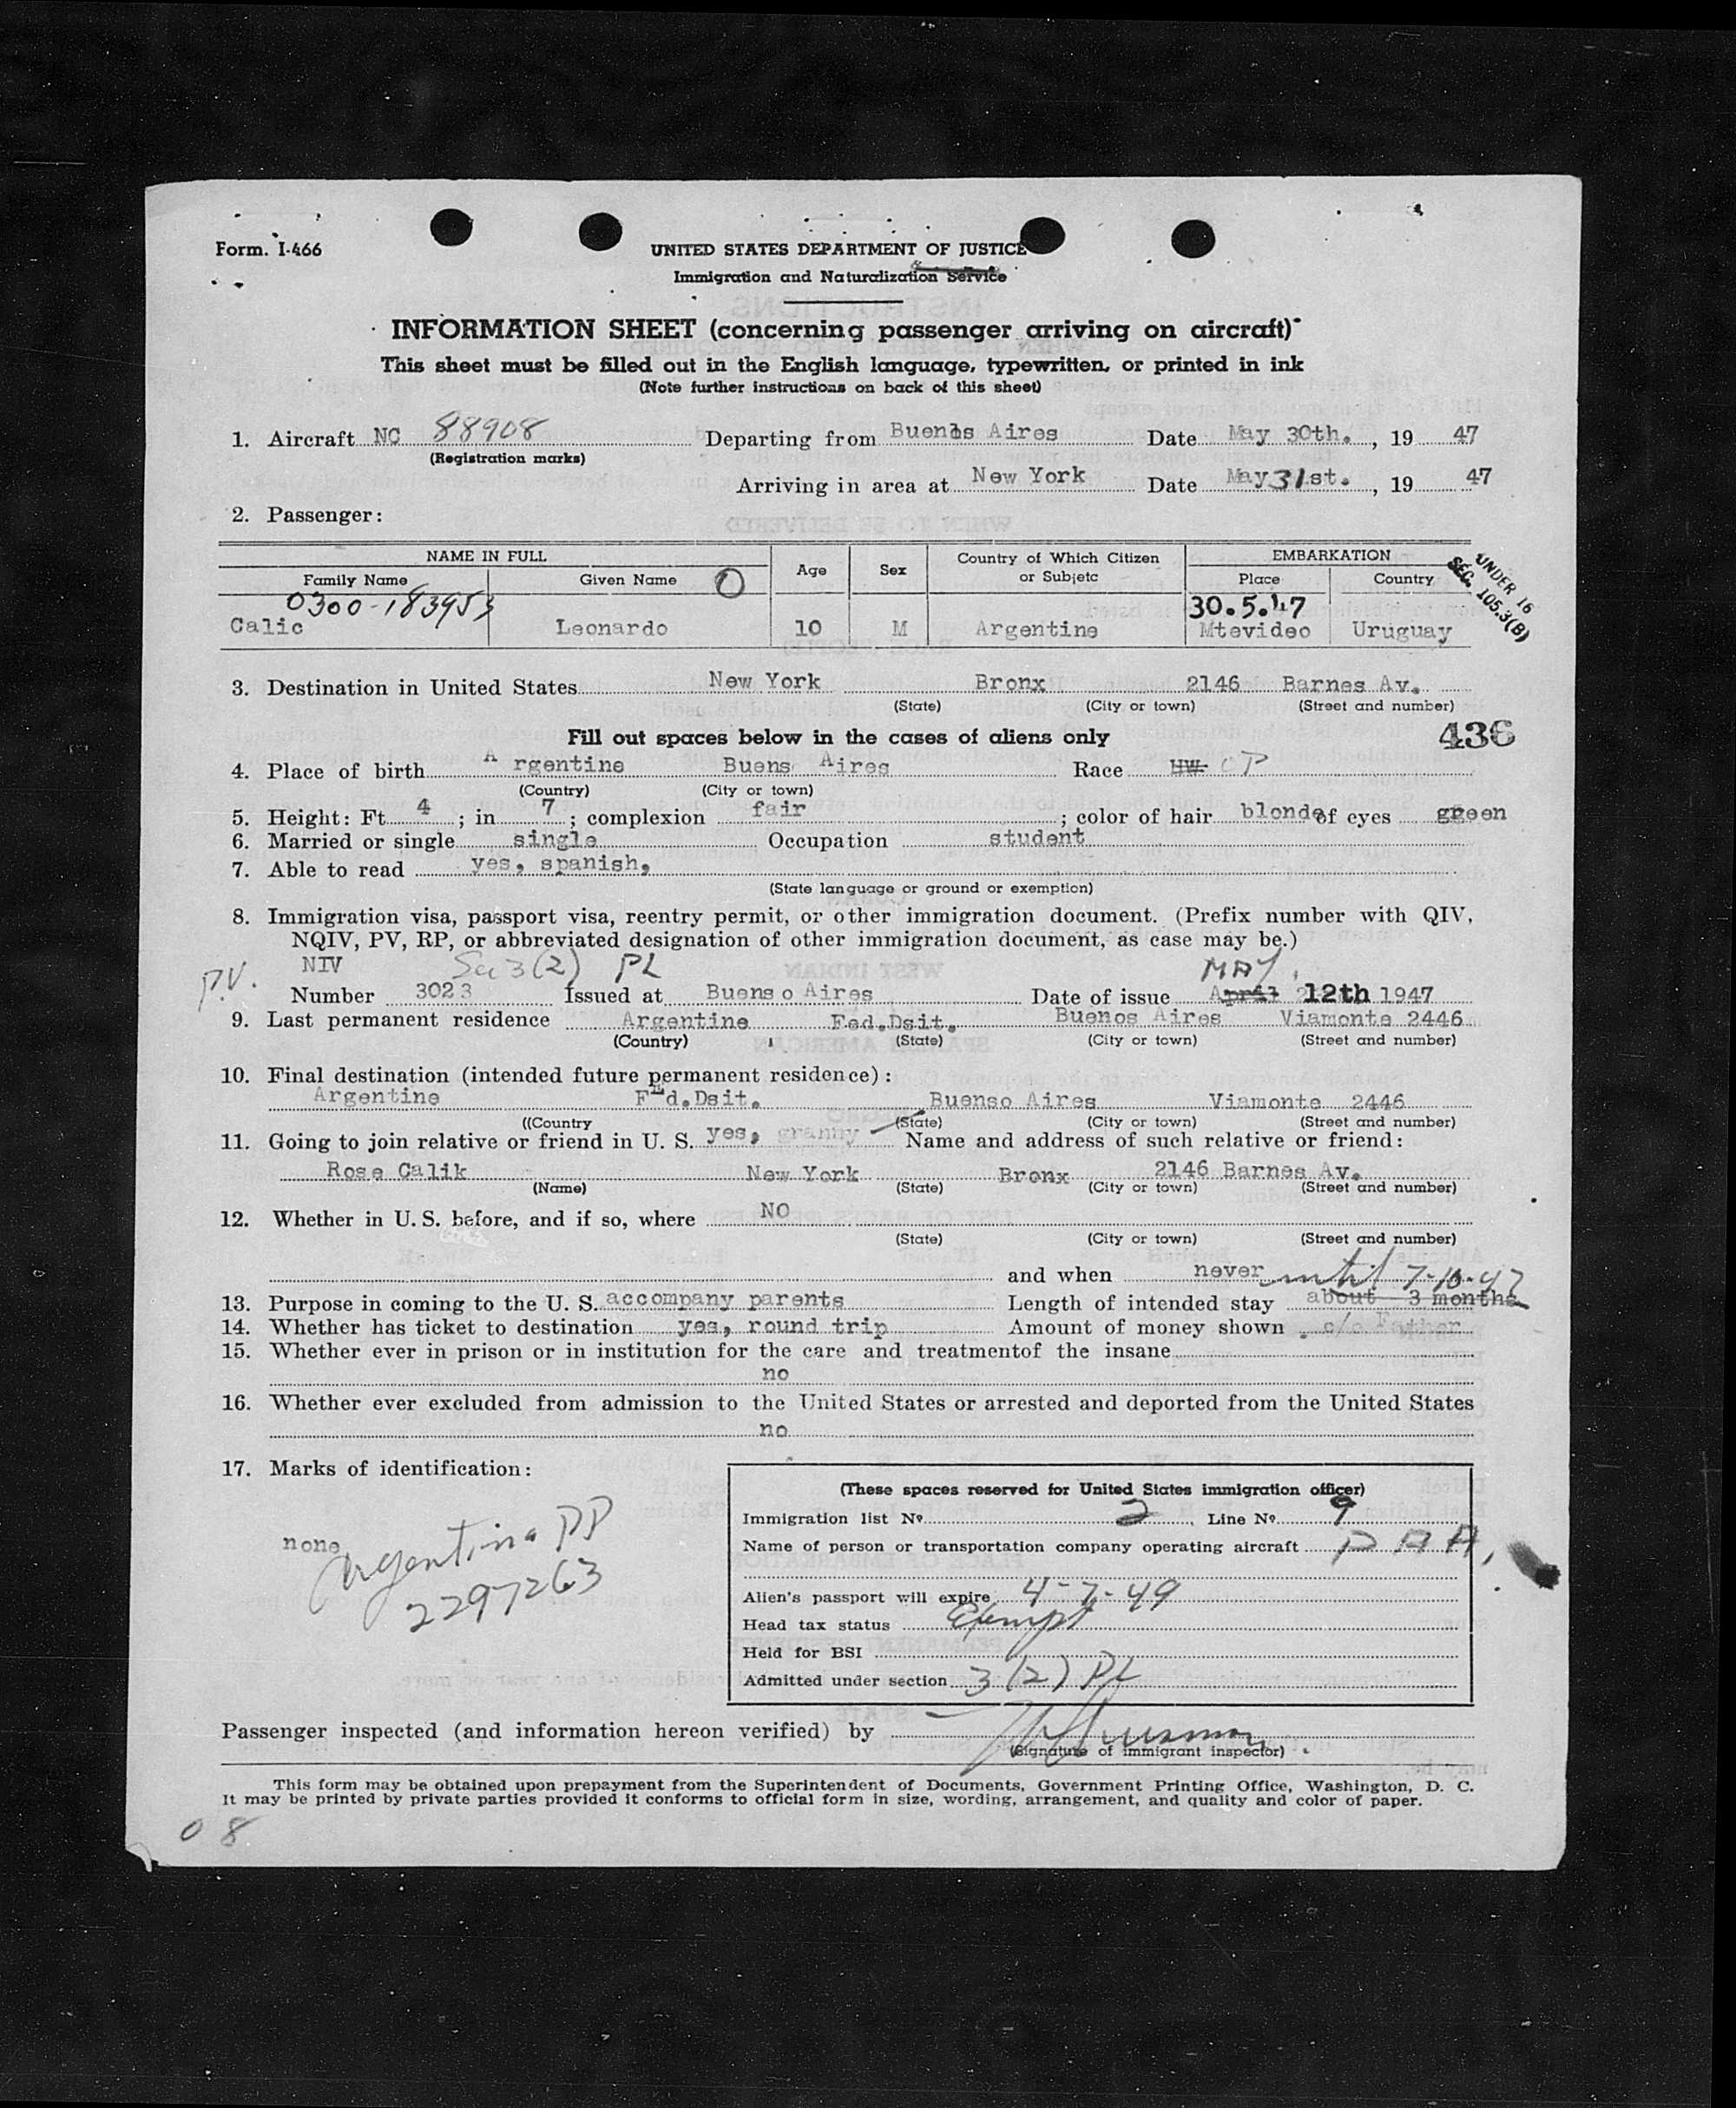 Form. I-466
UNITED STATES DEPARTMENT OF JUSTICE
Immigration and Naturalization Service
INFORMATION SHEET (concerning passenger arriving on aircraft)
This sheet must be filled out in the English language, typewritten, or printed in ink
(Note further instructions on back of this sheet)
1. Aircraft NC 88908 Departing from Buenos Aires Date May 30th. , 19 47
(Registration marks)
Arriving in area at New York Date May 31st. , 19 47
2. Passenger:
NAME IN FULL Age Sex Country of Which Citizen or Subjetc EMBARKATION
Family Name Given Name Place Country
UNDER 16
SEC. 105.3(B)
0300-183953 30.5.47
Calic Leonardo 10 M Argentine Mtevideo Uruguay
3. Destination in United States New York Bronx 2146 Barnes Av.
(State) (City or town) (Street and number)
Fill out spaces below in the cases of aliens only 436
4. Place of birth Argentine Buens Aires Race HW
(Country) (City or town)
5. Height: Ft 4 ; in 7 ; complexion fair ; color of hair blonde of eyes green
6. Married or single single Occupation student
7. Able to read yes, spanish,
(State language or ground or exemption)
8. Immigration visa, passport visa, reentry permit, or other immigration document. (Prefix number with QIV,
NQIV, PV, RP, or abbreviated designation of other immigration document, as case may be.)
P.V. NIV Sec 3(2) PL MAY.
Number 3023 Issued at Buenso Aires Date of issue April 12th 1947
9. Last permanent residence Argentine Fed.Dsit. Buenos Aires Viamonte 2446
(Country) (State) (City or town) (Street and number)
10. Final destination (intended future permanent residence):
Argentine FEd.Dsit. Buenso Aires Viamonte 2446
((Country (State) (City or town) (Street and number)
11. Going to join relative or friend in U. S. yes, granny Name and address of such relative or friend:
Rose Calik New York Bronx 2146 Barnes Av.
(Name) (State) (City or town) (Street and number)
12. Whether in U. S. before, and if so, where NO
(State) (City or town) (Street and number)
and when never until 7-10-47
13. Purpose in coming to the U. S. accompany parents Length of intended stay about 3 months
14. Whether has ticket to destination yes, round trip Amount of money shown c/o Father
15. Whether ever in prison or in institution for the care and treatmentof the insane
no
16. Whether ever excluded from admission to the United States or arrested and deported from the United States
no
17. Marks of identification:
none
Argentina PP
2297263
(These spaces reserved for United States immigration officer)
Immigration list Nº 2 Line Nº 9
Name of person or transportation company operating aircraft P A A,
Alien's passport will expire 4-7-49
Head tax status Exempt
Held for BSI
Admitted under section 3 (2) PL
Passenger inspected (and information hereon verified) by
(Signature of immigrant inspector)
This form may be obtained upon prepayment from the Superintendent of Documents, Government Printing Office, Washington, D. C.
It may be printed by private parties provided it conforms to official form in size, wording, arrangement, and quality and color of paper.
08